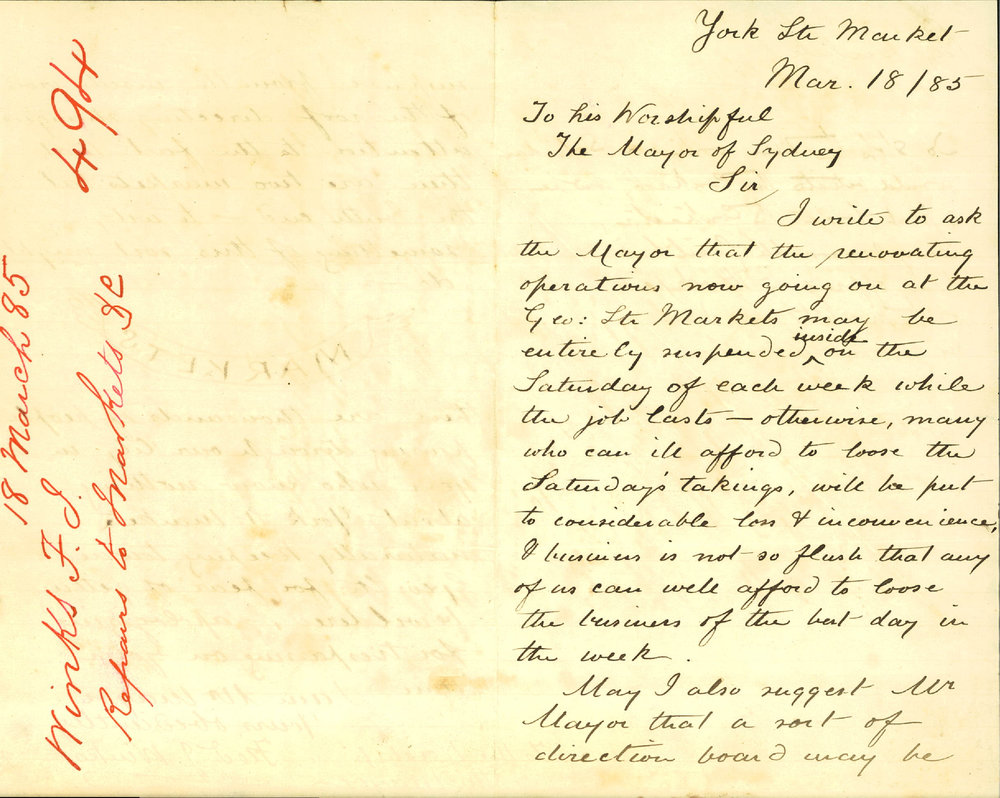 494
18 March 85
Winks F. J.
Repairs to Markets &c
York Str Market
Mar. 18/85
To his Worshipful
The Mayor of Sydney
Sir,
I write to ask
the Mayor that the renovating
operations now going on at the
Geo: Str Markets may be
entirely suspended inside on the
Saturday of each week while
the job lasts — otherwise, many
who can ill afford to loose the
Saturday's takings, will be put
to considerable loss & inconvenience,
& business is not so flush that any
of us can well afford to loose
the business of the best day in
the week.
May I also suggest Mr
Mayor that a sort of
direction board may be